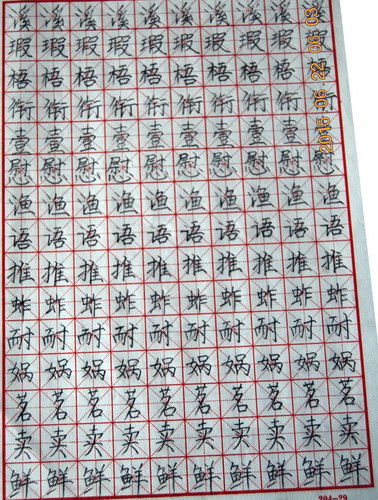 溪溪溪溪溪溪溪溪溪
瑕瑕瑕瑕瑕瑕瑕瑕瑕瑕
梧梧梧梧梧梧梧梧梧
衔衔衔衔衔衔衔衔衔
壹壹壹壹壹壹壹壹壹
慰慰慰慰慰慰慰慰慰慰
渔渔渔渔渔渔渔渔渔渔
语语语语语语语语语语
推推推推推推推推推推
蚱蚱蚱蚱蚱蚱蚱蚱蚱蚱
耐耐耐耐耐耐耐耐耐耐
娲娲娲娲娲娲娲娲娲娲
茗茗茗茗茗茗茗茗茗茗
卖卖卖卖卖卖卖卖卖卖
鲜鲜鲜鲜鲜鲜鲜鲜鲜鲜